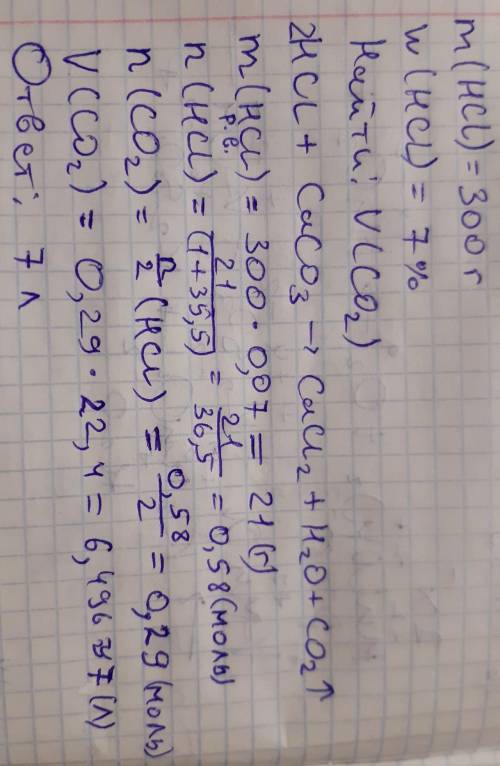 m(HCl) = 300 г
w(HCl) = 7%
Найти: V(CO₂)
2HCl + CaCO₃ → CaCl₂ + H₂O + CO₂↑
m(HCl)р.в. = 300 · 0,07 = 21(г)
n(HCl) = 21/(1+35,5) = 21/36,5 = 0,58(моль)
n(CO₂) = n/2 (HCl) = 0,58/2 = 0,29(моль)
V(CO₂) = 0,29 · 22,4 = 6,496 ≈ 7(л)
Ответ: 7 л